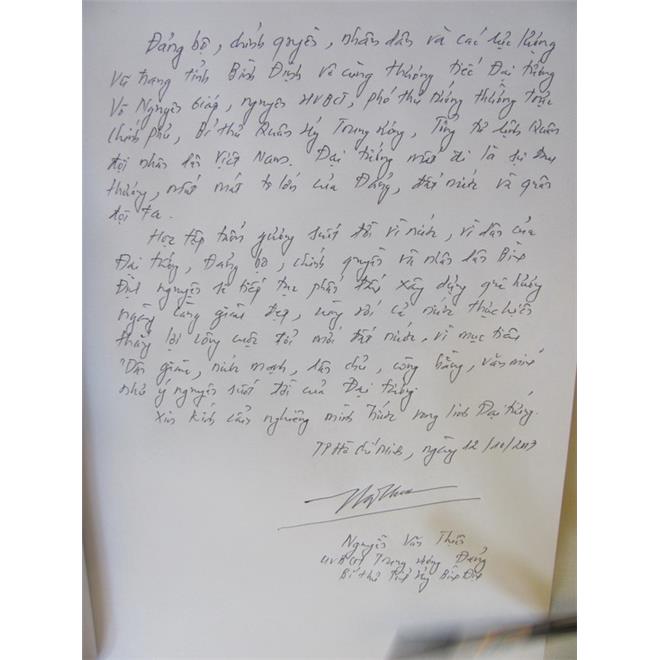 Đảng bộ, chính quyền, nhân dân và các lực lượng
vũ trang tỉnh Bình Định vô cùng thương tiếc Đại tướng
Võ Nguyên Giáp, nguyên UVBCT, phó thủ tướng thường trực
Chính phủ, Bí thư Quân ủy Trung ương, Tổng tư lệnh Quân
đội nhân dân Việt Nam. Đại tướng mất đi là sự đau
thương, mất mát to lớn của Đảng, đất nước và quân
đội ta.
Học tập tấm gương suốt đời vì nước, vì dân của
Đại tướng, Đảng bộ, chính quyền và nhân dân Bình
Định nguyện sẽ tiếp tục phấn đấu xây dựng quê hương
ngày càng giàu đẹp, cùng với cả nước thực hiện
thắng lợi công cuộc đổi mới đất nước, vì mục tiêu
"Dân giàu, nước mạnh, dân chủ, công bằng, văn minh"
như ý nguyện suốt đời của Đại tướng.
Xin kính cẩn nghiêng mình trước vong linh Đại tướng.
TP Hồ Chí Minh, ngày 12/10/2013
Nguyễn Văn Thiện
UVBCH Trung ương Đảng
Bí thư Tỉnh ủy Bình Định